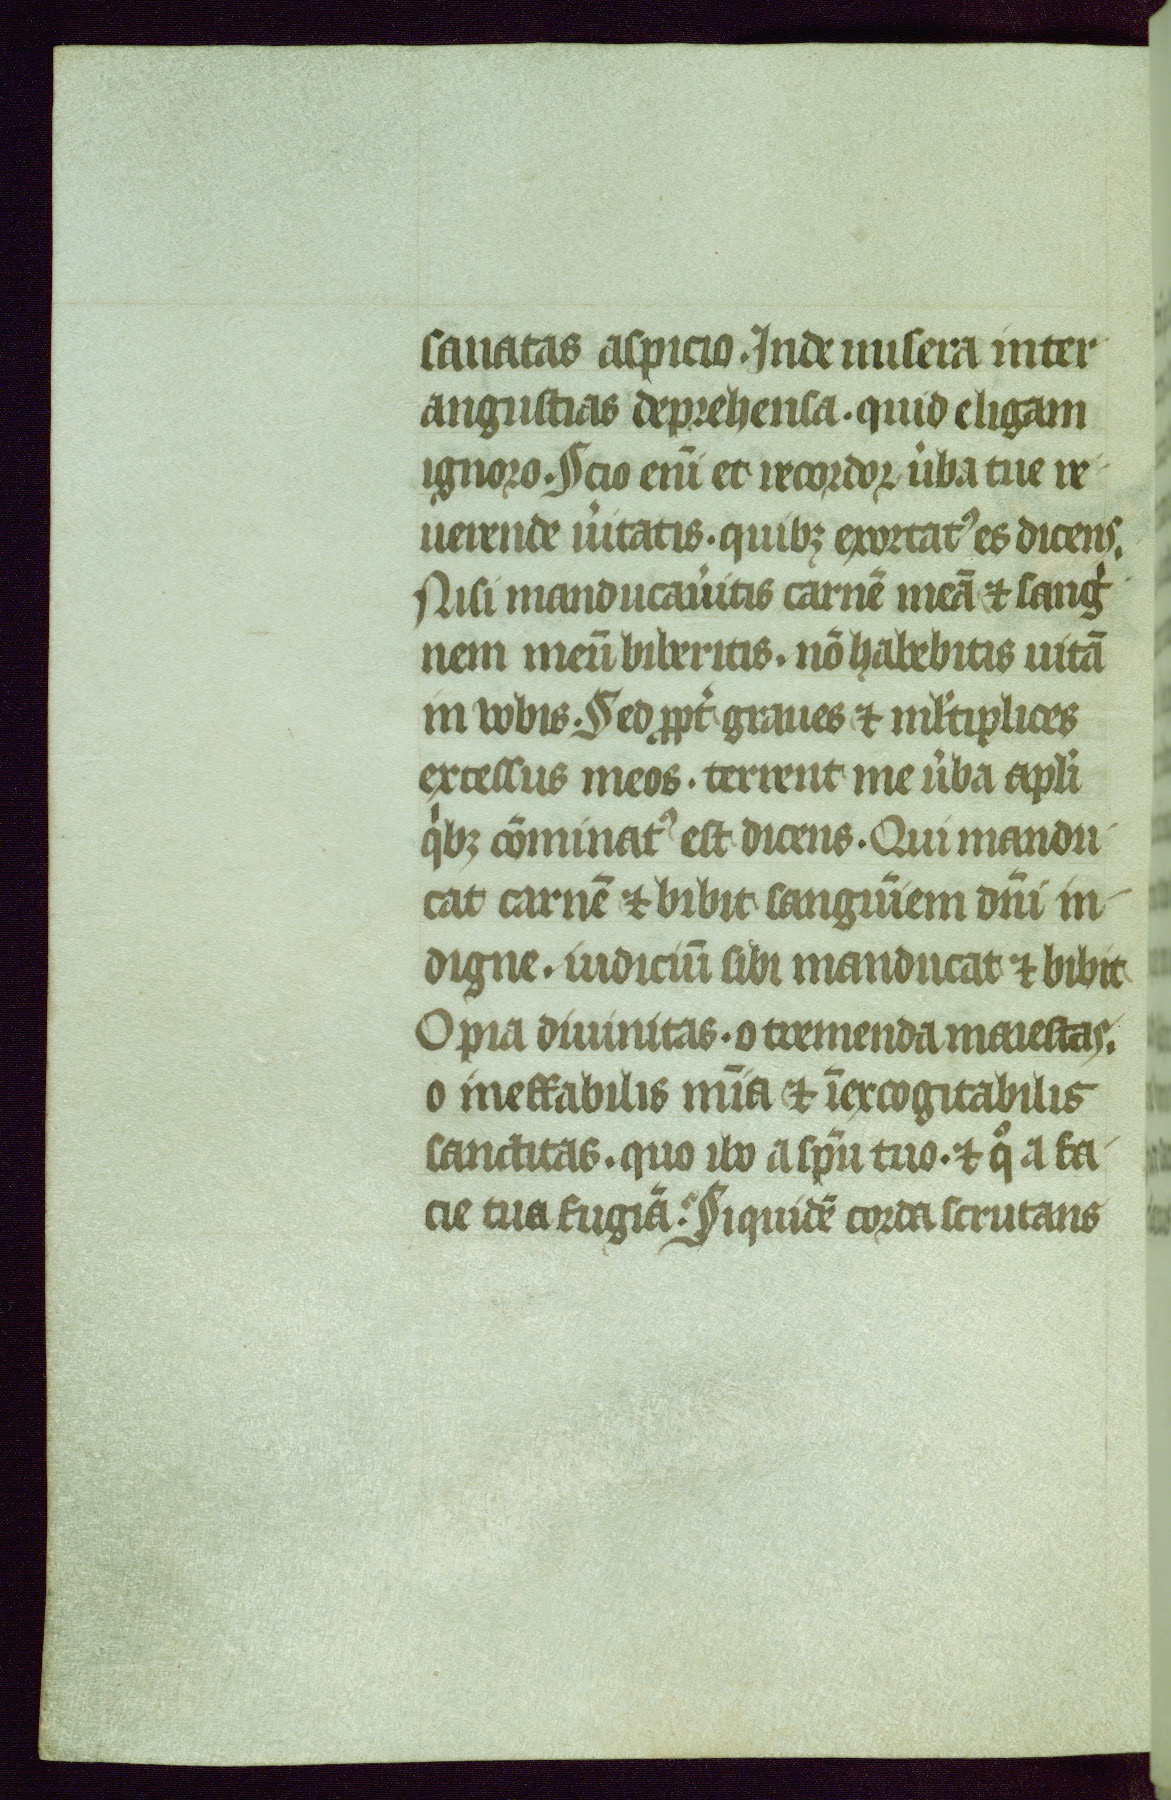 sanatas aspicio. Inde misera inter
angustias deprehensa. quid eligam
ignoro. Scio eni᷑ et recordor u᷑ba tue re
uerende u᷑itatis. quibꝫ exortatꝰ es dicens.
Nisi manducau᷑itis carnē meā ⁊ sangͥ
nem meū biberitis. nō habebitis uitā
in vobis. Sed ꝓpt᷑ graues ⁊ ml᷑tiplices
excessus meos. terrent me u᷑ba apl᷑i
qͥbꝫ cōminatꝰ est dicens. Qui mandu
cat carnē ⁊ bibit sanguīem dn̄i in
digne. iudiciū sibi manducat ⁊ bibit
O pia diuinitas. o tremenda maiestas.
o ineffabilis mīa ⁊ īexcogitabilis
sanctitas. quo ibo a spū tuo. ⁊ qͦ a fa
cie tua fugiā? Siquidē corda scrutans